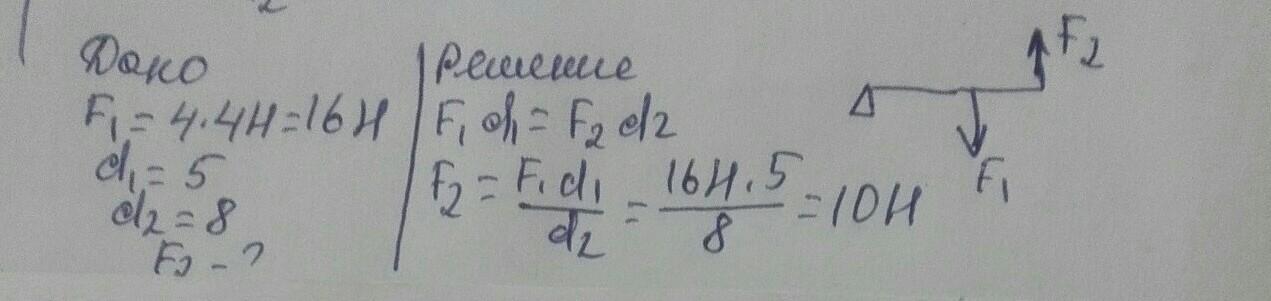 Дано
F₁ = 4·4Н = 16Н
d₁ = 5
d₂ = 8
F₂ - ?
Решение
F₁ d₁ = F₂ d₂
F₂ = F₁ d₁ / d₂ = 16Н·5 / 8 = 10Н
F₂
F₁